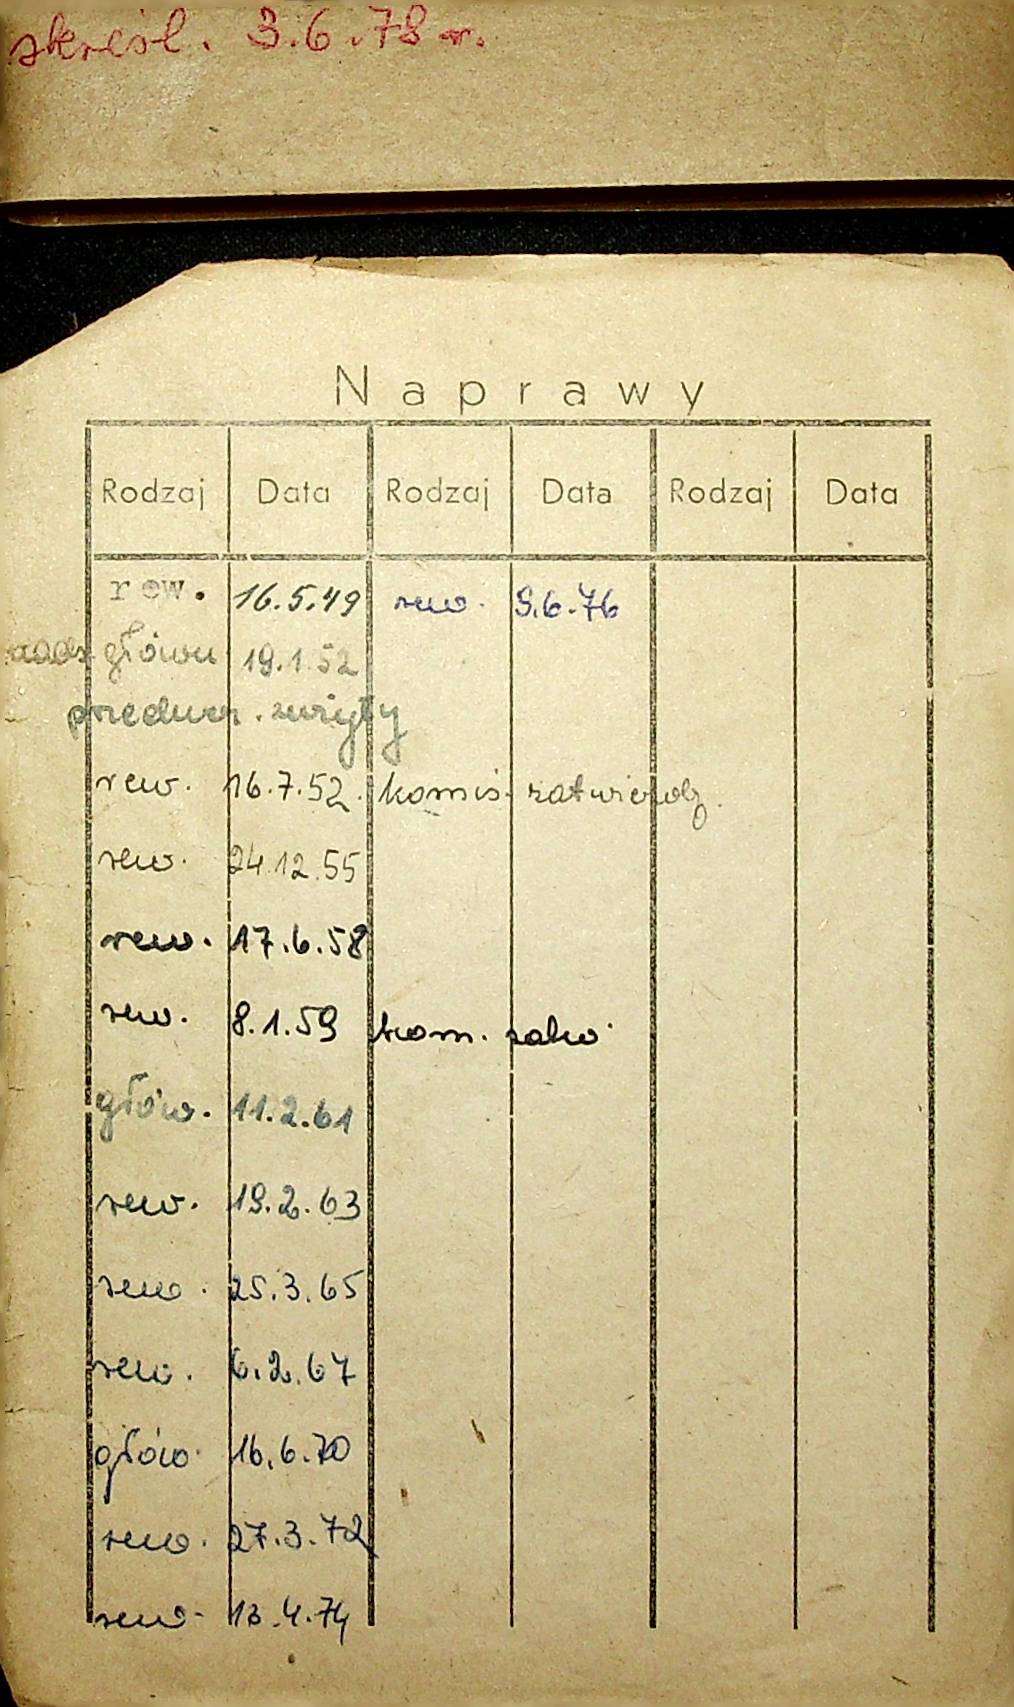 skreśl. 3.6.78 r.
Naprawy
Rodzaj Data Rodzaj Data Rodzaj Data
rew. 16.5.49 rew. 9.6.76
główn 19.1.52
przedwcz. zużyty
rew. 16.7.52. komis. zatwierdz.
rew. 24.12.55
rew. 17.6.58
rew. 8.1.59 kom.
głów. 11.2.61
rew. 19.2.63
rew. 25.3.65
rew. 6.2.67
głów. 16.6.70
rew. 27.3.72
rew. 13.4.74